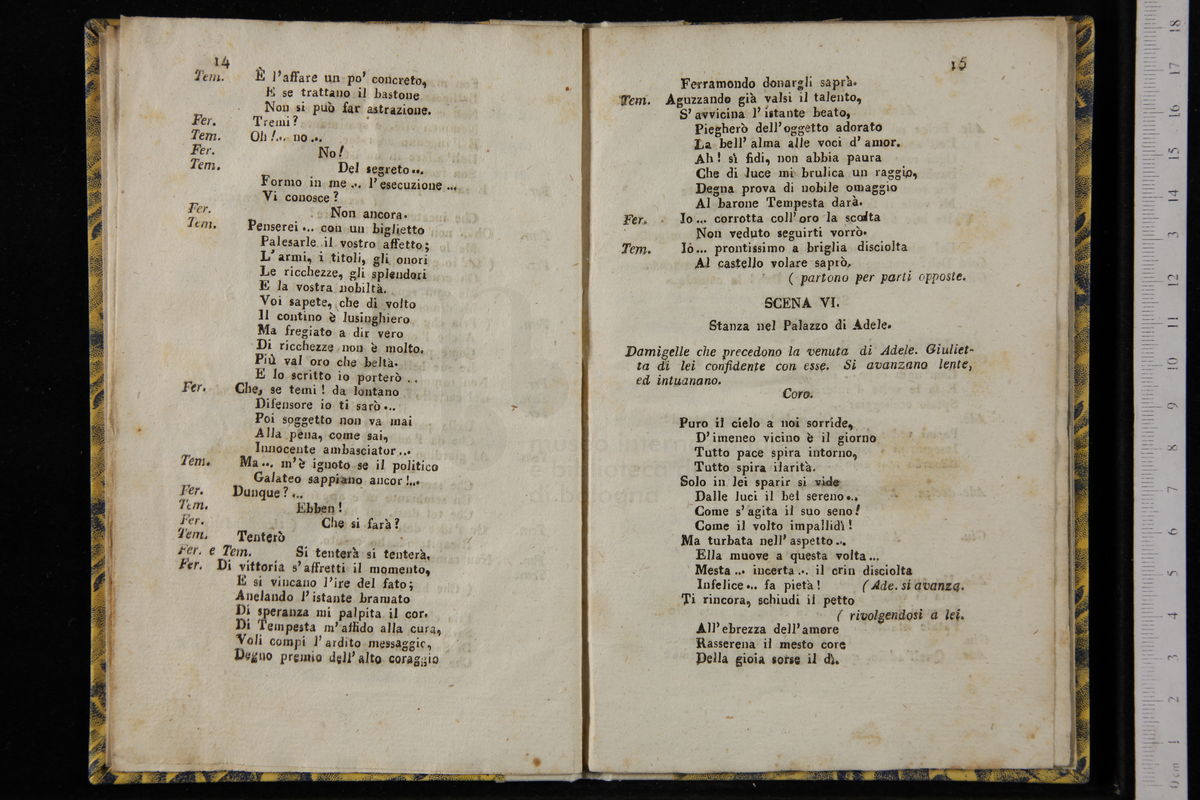 14
Tem. È l'affare un po' concreto,
E se trattano il bastone
Non si può far astrazione.
Fer. Tremi?
Tem. Oh!... no...
Fer. No!
Tem. Del segreto...
Formo in me... l'esecuzione...
Vi conosce?
Fer. Non ancora.
Tem. Penserei... con un biglietto
Palesarle il vostro affetto;
L'armi, i titoli, gli onori
Le ricchezze, gli splendori
E la vostra nobiltà.
Voi sapete, che di volto
Il contino è lusinghiero
Ma fregiato a dir vero
Di ricchezze non è molto.
Più val oro che beltà.
E lo scritto io porterò ..
Fer. Che, se temi! da lontano
Difensore io ti sarò...
Poi soggetto non va mai
Alla pena, come sai,
Innocente ambasciator...
Tem. Ma... m'è ignoto se il politico
Galateo sappiano ancor!...
Fer. Dunque?...
Tem. Ebben!
Fer. Che si farà?
Tem. Tenterò
Fer. e Tem. Si tenterà si tenterà.
Fer. Di vittoria s'affretti il momento,
E si vincano l'ire del fato;
Anelando l'istante bramato
Di speranza mi palpita il cor.
Di Tempesta m'affido alla cura,
Voli compi l'ardito messaggio,
Degno premio dell'alto coraggio
15
Ferramondo donargli saprà.
Tem. Aguzzando già valsi il talento,
S'avvicina l'istante beato,
Piegherò dell'oggetto adorato
La bell'alma alle voci d'amor.
Ah! sì fidi, non abbia paura
Che di luce mi brulica un raggio,
Degna prova di nobile omaggio
Al barone Tempesta darà.
Fer. Io... corrotta coll'oro la scolta
Non veduto seguirti vorrò.
Tem. Iò... prontissimo a briglia disciolta
Al castello volare saprò.
( partono per parti opposte.
SCENA VI.
Stanza nel Palazzo di Adele.
Damigelle che precedono la venuta di Adele. Giuliet-
ta di lei confidente con esse. Si avanzano lente,
ed intuanano.
Coro.
Puro il cielo a noi sorride,
D'imeneo vicino è il giorno
Tutto pace spira intorno,
Tutto spira ilarità.
Solo in lei sparir si vide
Dalle luci il bel sereno...
Come s'agita il suo seno!
Come il volto impallidì!
Ma turbata nell'aspetto...
Ella muove a questa volta...
Mesta... incerta... il crin disciolta
Infelice... fa pietà! (Ade. si avanza.
Ti rincora, schiudi il petto
( rivolgendosi a lei.
All'ebrezza dell'amore
Rasserena il mesto core
Della gioia sorse il dì.